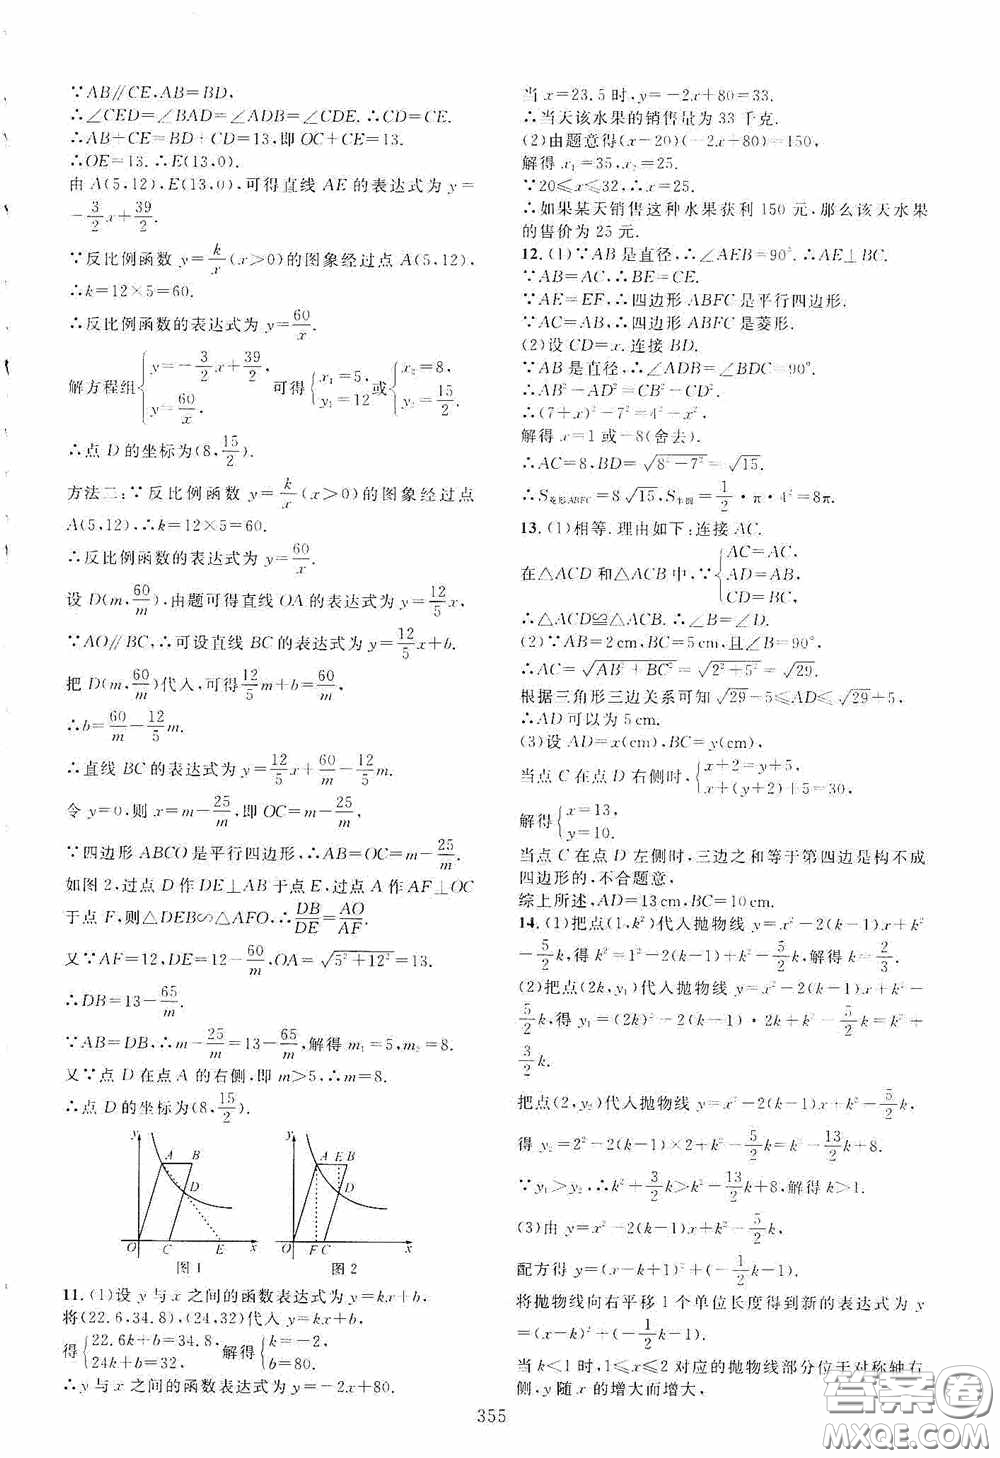 ∵AB∥CE,AB=BD,
∴∠CED=∠BAD=∠ADB=∠CDE.∴CD=CE.
∴AB+CE=BD+CD=13,即OC+CE=13.
∴OE=13.∴E(13,0).
由A(5,12),E(13,0),可得直线AE的表达式为y=
-3/2x+39/2.
∵反比例函数y=k/x(x>0)的图象经过点A(5,12),
∴k=12×5=60.
∴反比例函数的表达式为y=60/x.
解方程组{y=-3/2x+39/2, y=60/x, 可得{x₁=5, y₁=12 或{x₂=8, y₂=15/2.
∴点D的坐标为(8,15/2).
方法二:∵反比例函数y=k/x(x>0)的图象经过点
A(5,12),∴k=12×5=60.
∴反比例函数的表达式为y=60/x.
设D(m,60/m),由题可得直线OA的表达式为y=12/5x,
∵AO∥BC,∴可设直线BC的表达式为y=12/5x+b.
把D(m,60/m)代入,可得12/5m+b=60/m,
∴b=60/m-12/5m.
∴直线BC的表达式为y=12/5x+60/m-12/5m.
令y=0,则x=m-25/m,即OC=m-25/m,
∵四边形ABCO是平行四边形,∴AB=OC=m-25/m.
如图2,过点D作DE⊥AB于点E,过点A作AF⊥OC
于点F,则△DEB∽△AFO,∴DB/DE=AO/AF.
又∵AF=12,DE=12-60/m,OA=√(5²+12²)=13.
∴DB=13-65/m.
∵AB=DB,∴m-25/m=13-65/m,解得m₁=5,m₂=8.
又∵点D在点A的右侧,即m>5,∴m=8.
∴点D的坐标为(8,15/2).
y A B D O C E x
图1
y A E B D O F C x
图2
11.(1)设y与x之间的函数表达式为y=kx+b,
将(22.6,34.8),(24,32)代入y=kx+b,
得{22.6k+b=34.8, 24k+b=32, 解得{k=-2, b=80.
∴y与x之间的函数表达式为y=-2x+80.
当x=23.5时,y=-2x+80=33.
∴当天该水果的销售量为33千克.
(2)由题意得(x-20)(-2x+80)=150,
解得x₁=35,x₂=25.
∵20≤x≤32,∴x=25.
∴如果某天销售这种水果获利150元,那么该天水果
的售价为25元.
12.(1)∵AB是直径,∴∠AEB=90°.∴AE⊥BC.
∵AB=AC,∴BE=CE.
∵AE=EF,∴四边形ABFC是平行四边形.
∵AC=AB,∴四边形ABFC是菱形.
(2)设CD=x.连接BD.
∵AB是直径,∴∠ADB=∠BDC=90°.
∴AB²-AD²=CB²-CD².
∴(7+x)²-7²=4²-x².
解得x=1或-8(舍去).
∴AC=8,BD=√(8²-7²)=√15.
∴S菱形ABFC=8√15,S半圆=1/2·π·4²=8π.
13.(1)相等.理由如下:连接AC.
在△ACD和△ACB中,∵{AC=AC, AD=AB, CD=BC,
∴△ACD≌△ACB.∴∠B=∠D.
(2)∵AB=2cm,BC=5cm,且∠B=90°,
∴AC=√(AB²+BC²)=√(2²+5²)=√29.
根据三角形三边关系可知√29-5≤AD≤√29+5.
∴AD可以为5cm.
(3)设AD=x(cm),BC=y(cm),
当点C在点D右侧时,{x+2=y+5, x+(y+2)+5=30,
解得{x=13, y=10.
当点C在点D左侧时,三边之和等于第四边是构不成
四边形的,不合题意,
综上所述,AD=13cm,BC=10cm.
14.(1)把点(1,k²)代入抛物线y=x²-2(k-1)x+k²
-5/2k,得k²=1²-2(k-1)+k²-5/2k,解得k=2/3.
(2)把点(2k,y₁)代入抛物线y=x²-2(k-1)x+k²-
5/2k,得y₁=(2k)²-2(k-1)·2k+k²-5/2k=k²+
3/2k.
把点(2,y₂)代入抛物线y=x²-2(k-1)x+k²-5/2k,
得y₂=2²-2(k-1)×2+k²-5/2k=k²-13/2k+8.
∵y₁>y₂,∴k²+3/2k>k²-13/2k+8,解得k>1.
(3)由y=x²-2(k-1)x+k²-5/2k,
配方得y=(x-k+1)²+(-1/2k-1).
将抛物线向右平移1个单位长度得到新的表达式为y
=(x-k)²+(-1/2k-1).
当k<1时,1≤x≤2对应的抛物线部分位于对称轴右
侧,y随x的增大而增大,
355
答案圈
MXQE.COM